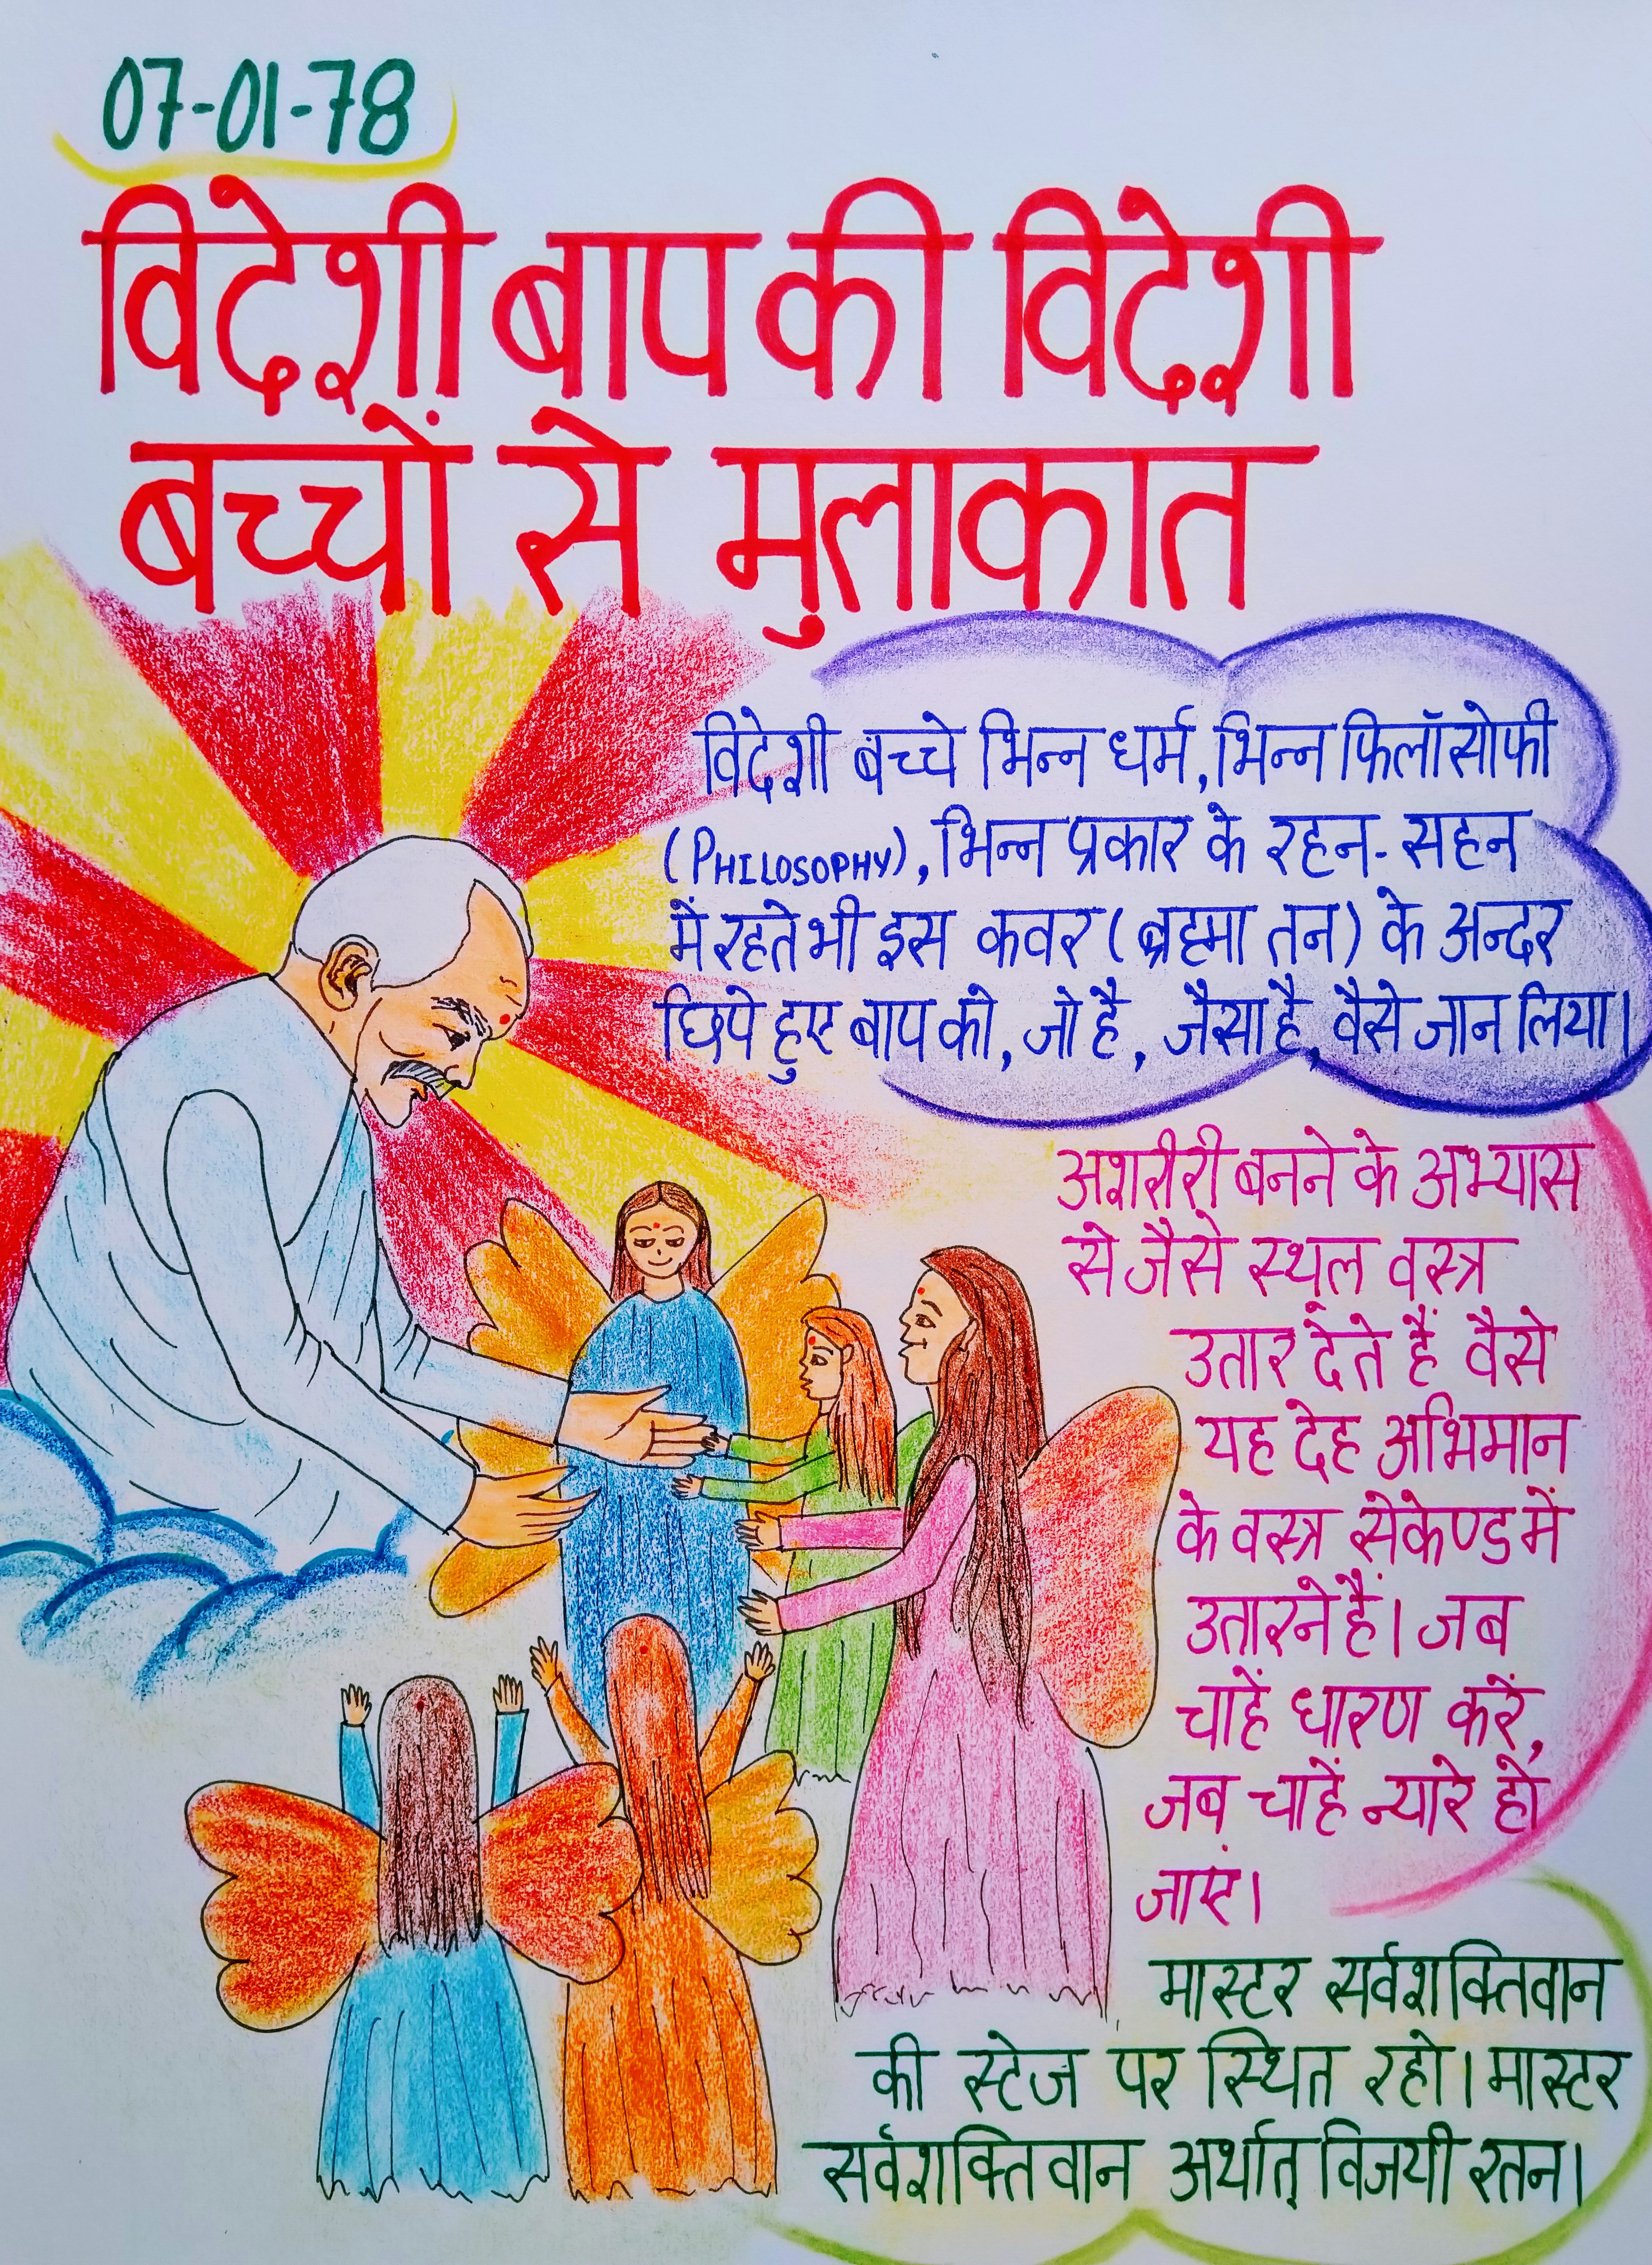 07-01-78
विदेशी बाप की विदेशी
बच्चों से मुलाकात
विदेशी बच्चे भिन्न धर्म, भिन्न फिलॉसोफी
(PHILOSOPHY), भिन्न प्रकार के रहन-सहन
में रहते भी इस कवर (ब्रह्मा तन) के अन्दर
छिपे हुए बाप को, जो है, जैसा है, वैसे जान लिया।
अशरीरी बनने के अभ्यास
से जैसे स्थूल वस्त्र
उतार देते हैं वैसे
यह देह अभिमान
के वस्त्र सेकेण्ड में
उतारने हैं। जब
चाहें धारण करें,
जब चाहें न्यारे हो
जाएं।
मास्टर सर्वशक्तिवान
की स्टेज पर स्थित रहो। मास्टर
सर्वशक्तिवान अर्थात् विजयी रतन।